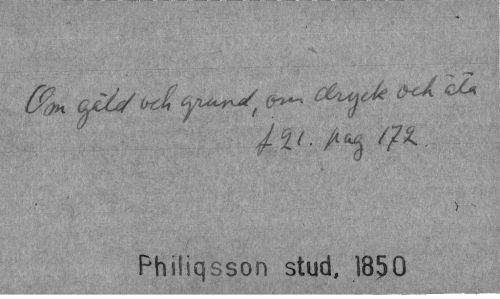 Om gäld och grund, om dryck och äta
f 21. pag 172.
Philiqsson stud, 1850